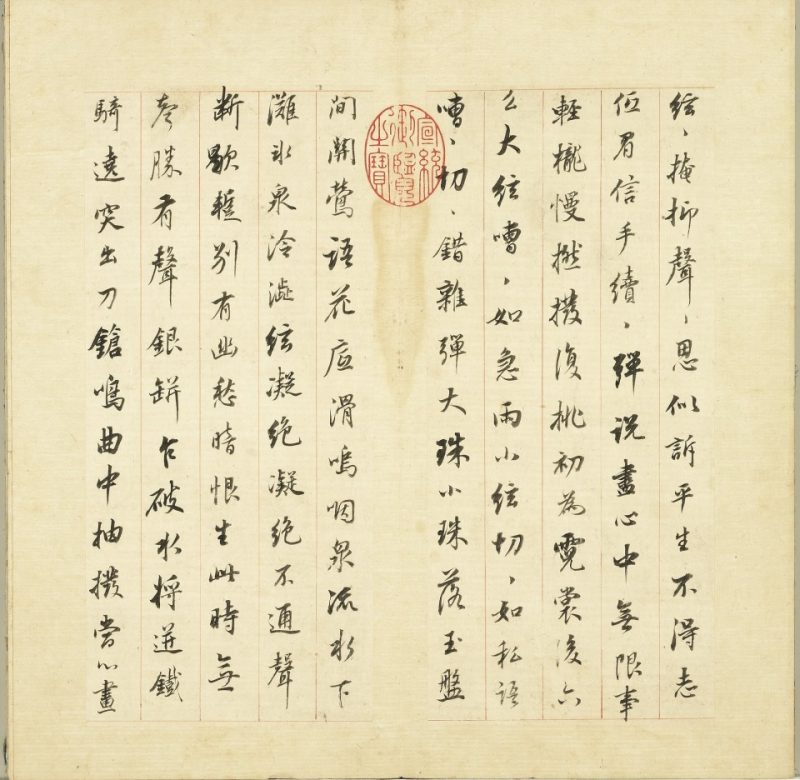 絃、掩抑聲、思似訴平生不得志
低眉信手續、彈説盡心中無限事
輕攏慢撚撥復挑初為霓裳後六
么大絃嘈、如急雨小絃切、如私語
嘈、切、錯雜彈大珠小珠落玉盤
宣統御覽之寶
間關鶯語花底滑嗚咽泉流水下
灘冰泉冷澁絃凝絶凝絶不通聲
断歇暫別有幽愁暗恨生此時無
聲勝有聲銀缾乍破水將迸鐵
騎遶突出刀鎗鳴曲中抽撥當心畫